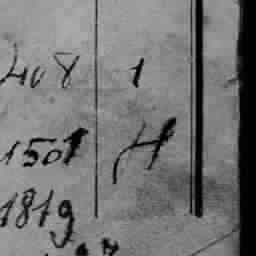 408 1
1501 H
1819